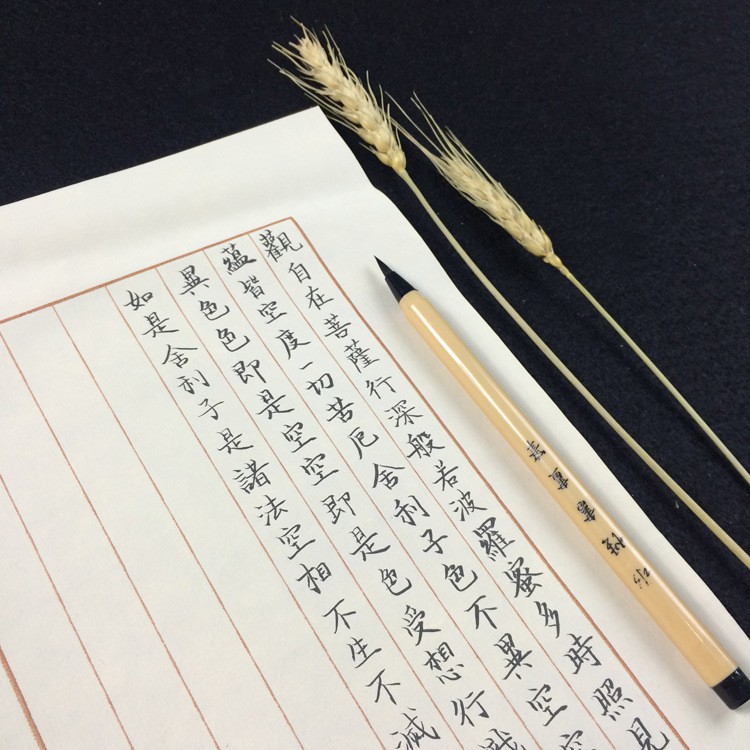 觀自在菩薩行深般若波羅蜜多時照見
蘊皆空度一切苦厄舍利子色不異空空
異色色即是空空即是色受想行識
如是舍利子是諸法空相不生不滅